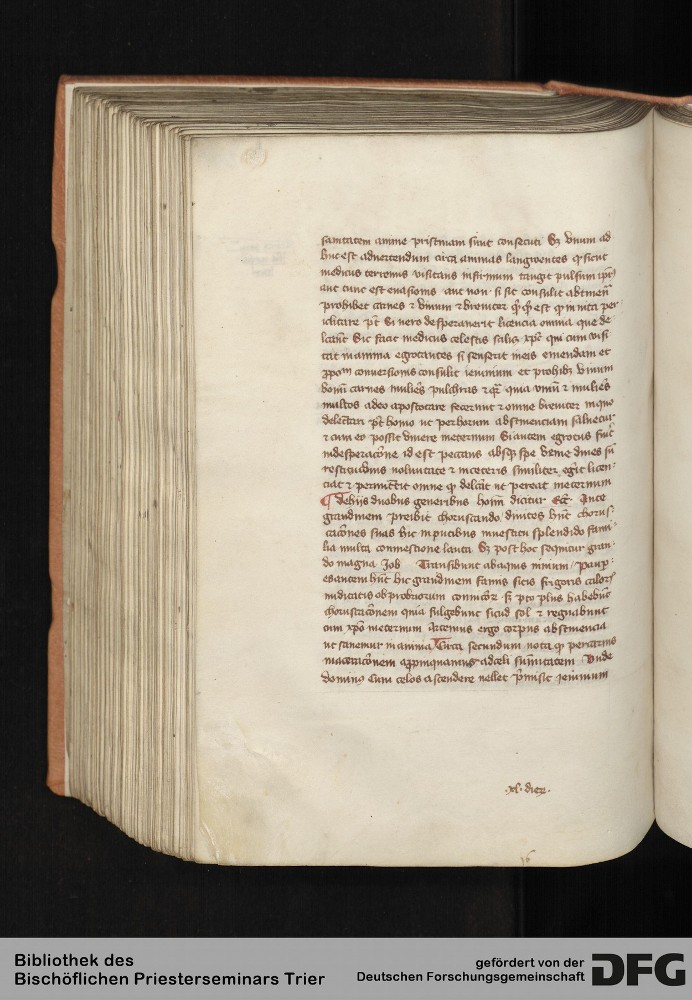 sanitatem anime pristinam sunt consecuti Sꝫ vnum ad
huc est aduertendum circa animas languentes qꝫ sicut
medicus terrenus visitans infirmum tangit pulsum
aut tunc est euasionis aut non si sic consulit abstinen
prohibet carnes ⁊ vinum ⁊ breuiter est in vita per
iclitare pt Si uero desperauerit licencia omnia que de
lcant Sic facit medicus celestis xpc qui cum visi
tat in anima egrotantes si senserit in eis emendam et
conuersionis consulit ieiunium et prohibꝫ vinum
carnes pulchras ⁊ quia vinum ⁊
multos adeo apostotare fecerunt ⁊ omne breuiter in quo
delectari pt homo ut per horum abstinenciam saluetur
⁊ cum eo possit viuere in eternum Si autem egrotus
in desperacone id est peccans absqꝫ spe venie
voluntate ⁊ in ceteris similiter egit licen
ciat ⁊ permittit omne qꝫ delcat ut pereat in eternum
de hijs duobus generibus dicitur Ecc Ante
grandinem preibit choruscando diuites hnt chorus
caciones suas hic in pucibus in vestitu splendido fami
lia multa commestione lauta Sꝫ post hoc sequitur gran
do magna Job Transibunt ab aquis nimium
hnt hic grandinem famis sitis frigoris
iudicatis obprobriorum plus habebunt
choruscaconem quia fulgebunt sicud sol ⁊ regnabunt
cum xpo in eternum Artemus ergo corpus abstinencia
ut sanemur in anima Circa secundum nota qꝫ per carnis
maceraconem appinquamus ad celi sumitatem Vnde
dominus Cum celos ascendere vellet premisit ieiunium
.xl. dierꝝ.
16
Bibliothek des
Bischöflichen Priesterseminars Trier
gefördert von der
Deutschen Forschungsgemeinschaft
DFG